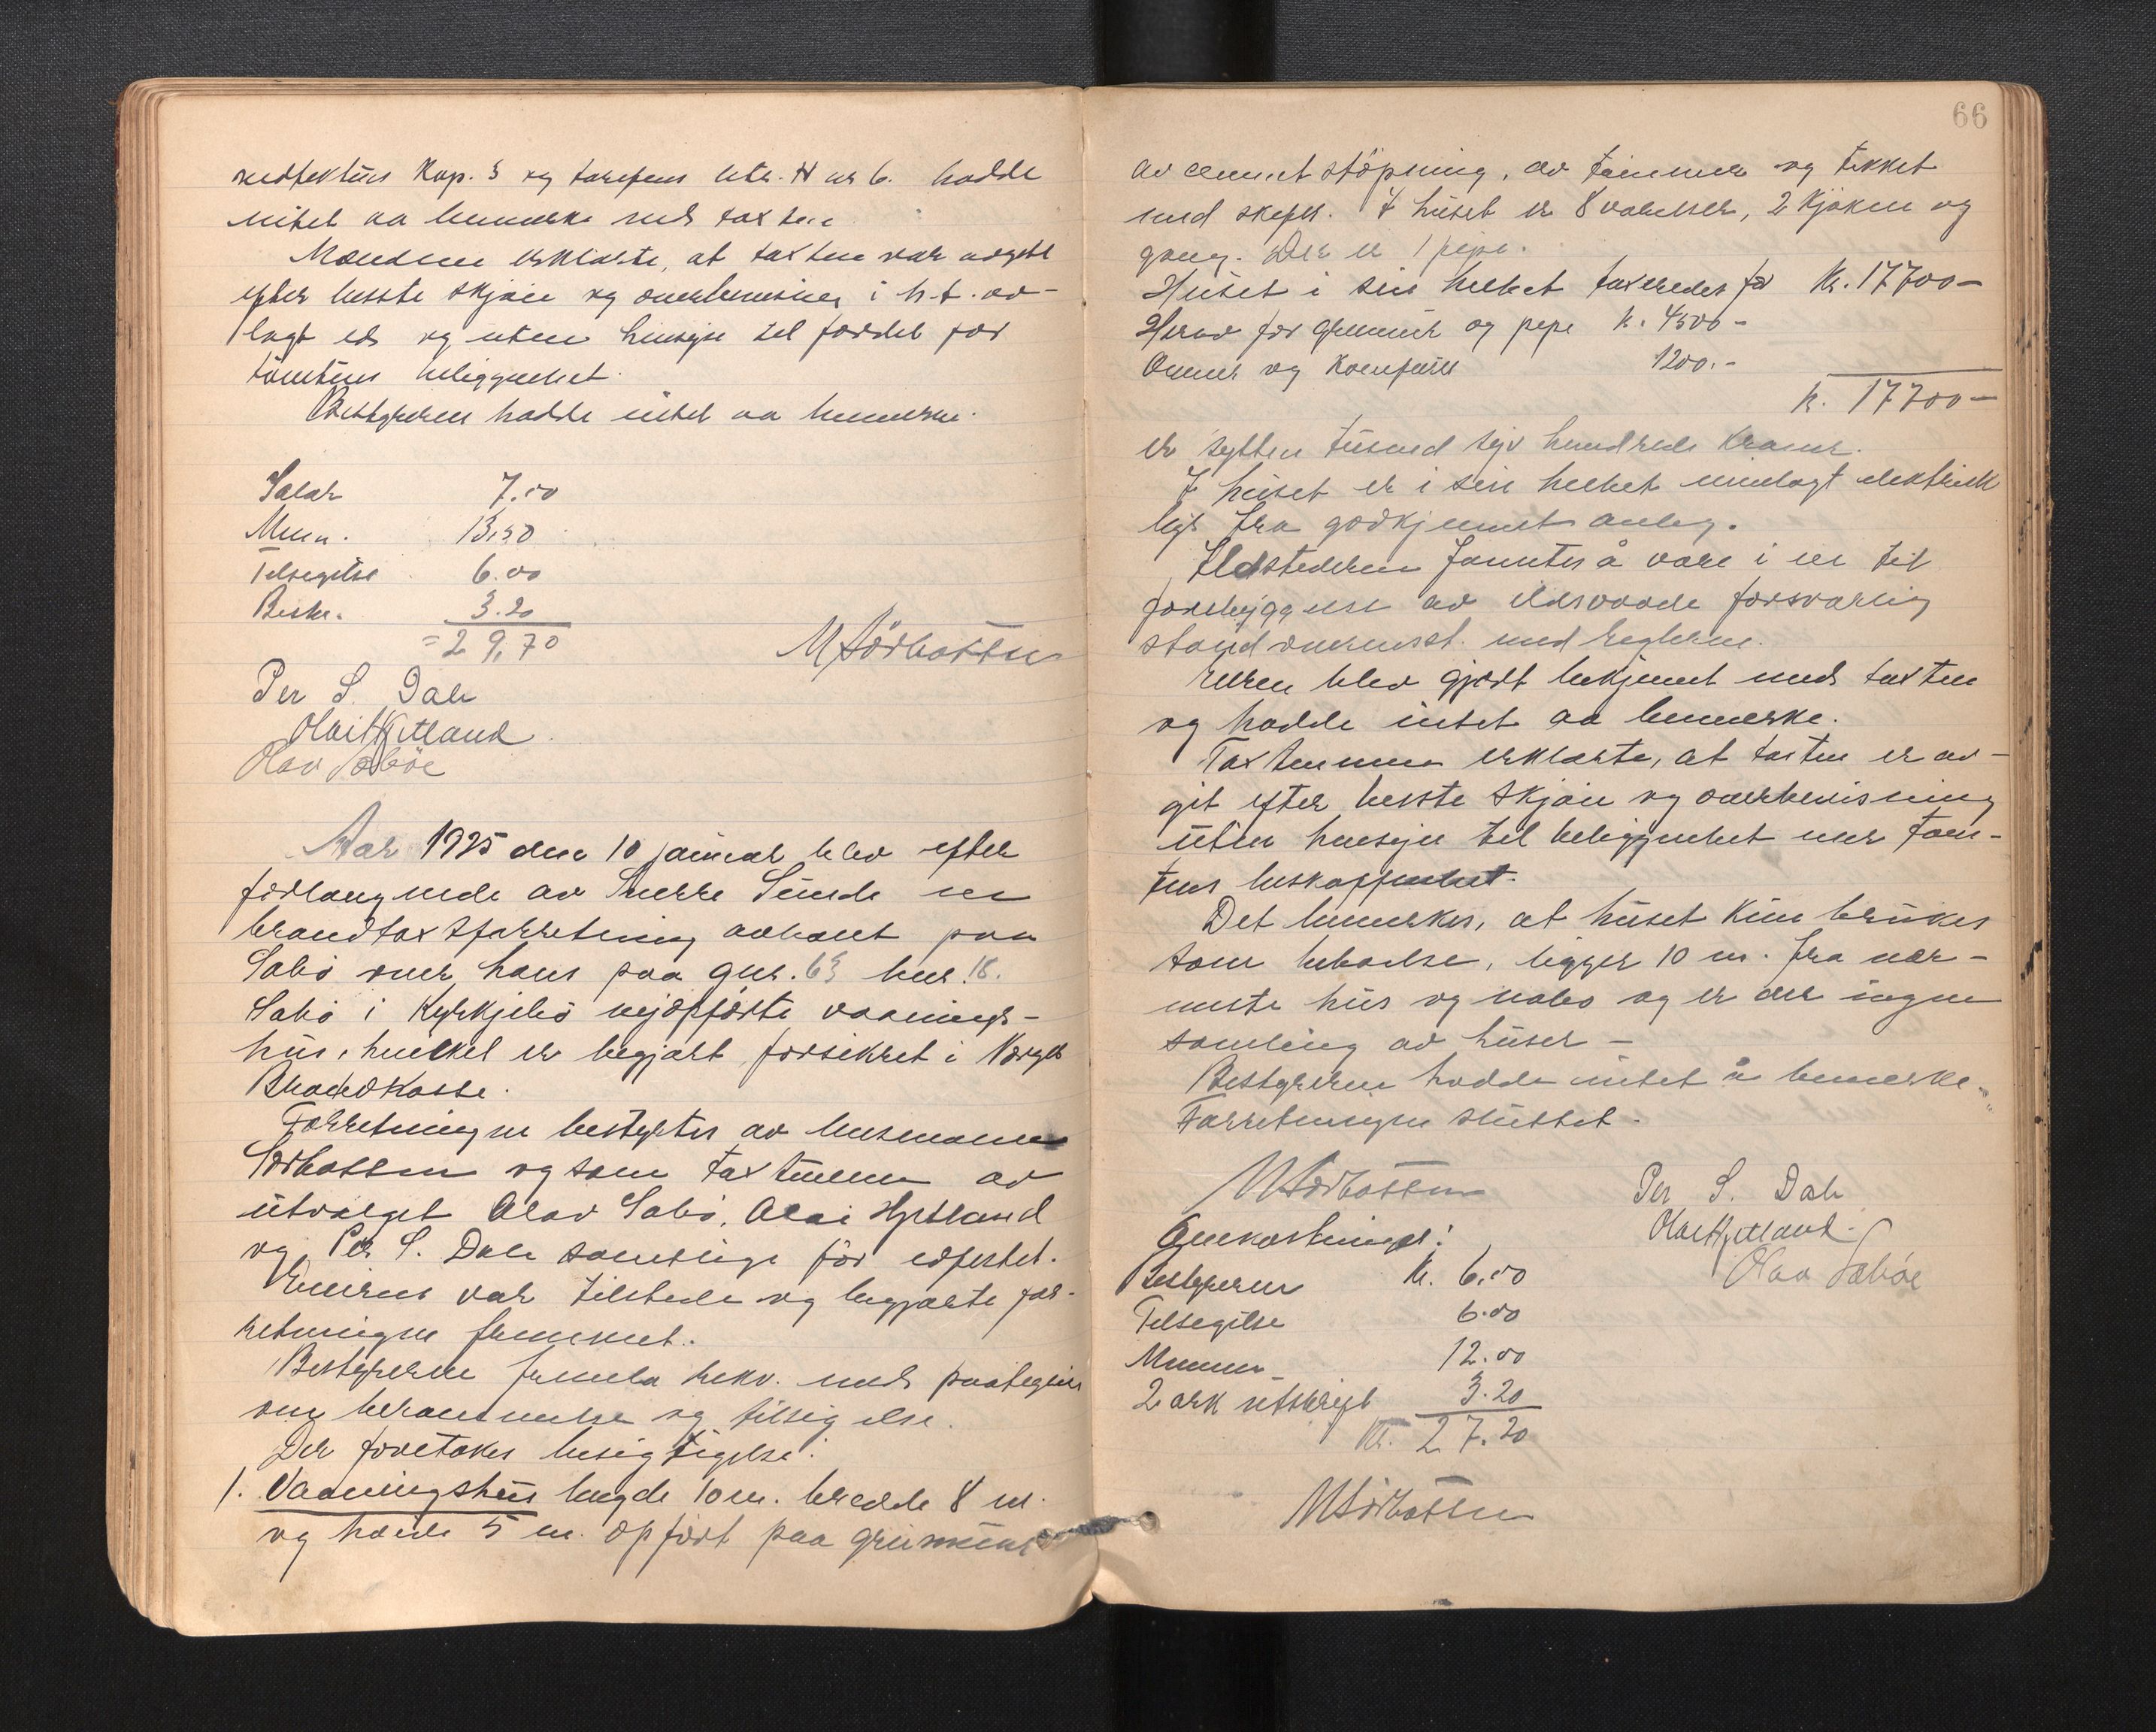 vedtektens Kap. 3 og tarifens litr. H nr 6. hadde
intet aa bemerke med taxten
Mændene erklærte, at taxten var avgit
efter beste skjøn og overbevisning i h.t. av-
lagt ed og uten hensyn til fordel for
tomtens beliggenhet.
Bestyreren hadde intet aa bemerke.
Salær 7.00
Menn. 13.50
Tilsigelse 6.00
Beskr. 3.20
= 29,70
M Sørbotten
Per S. Dale
Olai Hjetland
Olav Sæbøe
Aar 1925 den 10 januar blev efter
forlangende av Sverre Sunde en
brandtaxtforretning avholdt paa
Sæbø over hans paa gnr. 63 bnr. 18.
Sæbø i Kyrkjebø nyopførte vaanings-
hus, hvilket er begjært forsikret i Norges
Brandkasse.
Forretningen bestyrtes av lensmann
Sørbotten og som taxtmenn av
utvalget Olav Sæbø, Olai Hjetland
og Per S. Dale samtlige før edfestet.
Eieren var tilstede og begjærte for-
retningen fremmet.
Bestyreren fremla rekv. med paategning
om berammelse og tilsigelse.
Der foretokes besigtigelse:
1. Vaaningshus lengde 10 m. bredde 8 m.
og høide 5 m. opført paa grunmur
66
av cement støpning, av tømmer og tekket
med skifer. I huset er 8 værelser, 2 kjøken og
gang. Der er 1 pipe.
Huset i sin helhet taxeredes for Kr. 17700 –
Herav for grunmur og pipe kr. 4500 –
Ovner og Komfurer 1200. –
kr. 17700 –
er sytten tusend syv hundrede kroner.
I huset er i sin helhet innlagt elektrisk
lys fra godkjennet anleg.
Ildstederne fanntes å være i en til
forebyggelse av ildsvaade forsvarlig
stand overensst. med reglerne.
Eieren blev gjort bekjennt med taxten
og hadde intet aa bemerke.
Taxtmennene erklærte, at taxten er av-
git efter beste skjøn og overbevisning
uten hensyn til beliggenhet eller tom-
tens beskaffenhet.
Det bemerkes, at huset kun brukes
som beboelse, ligger 10 m. fra nær-
meste hus og nabo og er der ingen
samling av huser –
Bestyreren hadde intet å bemerke.
Forretningen sluttet.
M Sørbotten
Per S. Dale
Olai Hjetland.
Olav Sæbøe
Omkostninger:
Bestyreren Kr. 6,00
Tilsigelse 6.00
Mennene 12.00
2 ark utskrift 3.20
Kr. 27.20
M Sørbotten